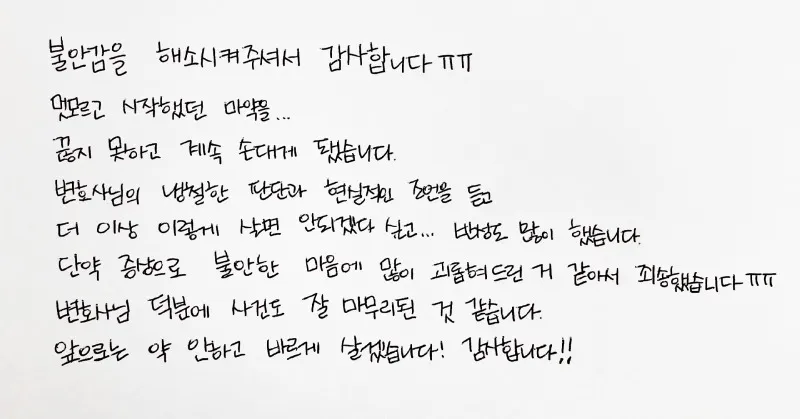 불안감을 해소시켜주셔서 감사합니다 ㅠㅠ
멋모르고 시작했던 마약을...
끊지 못하고 계속 손대게 됐습니다.
변호사님의 냉철한 판단과 현실적인 조언을 듣고
더 이상 이렇게 살면 안되겠다 싶고... 반성도 많이 했습니다.
단약 증상으로 불안한 마음에 많이 괴롭혀드린 거 같아서 죄송했습니다 ㅠㅠ
변호사님 덕분에 사건도 잘 마무리된 것 같습니다.
앞으로는 약 안하고 바르게 살겠습니다! 감사합니다!!